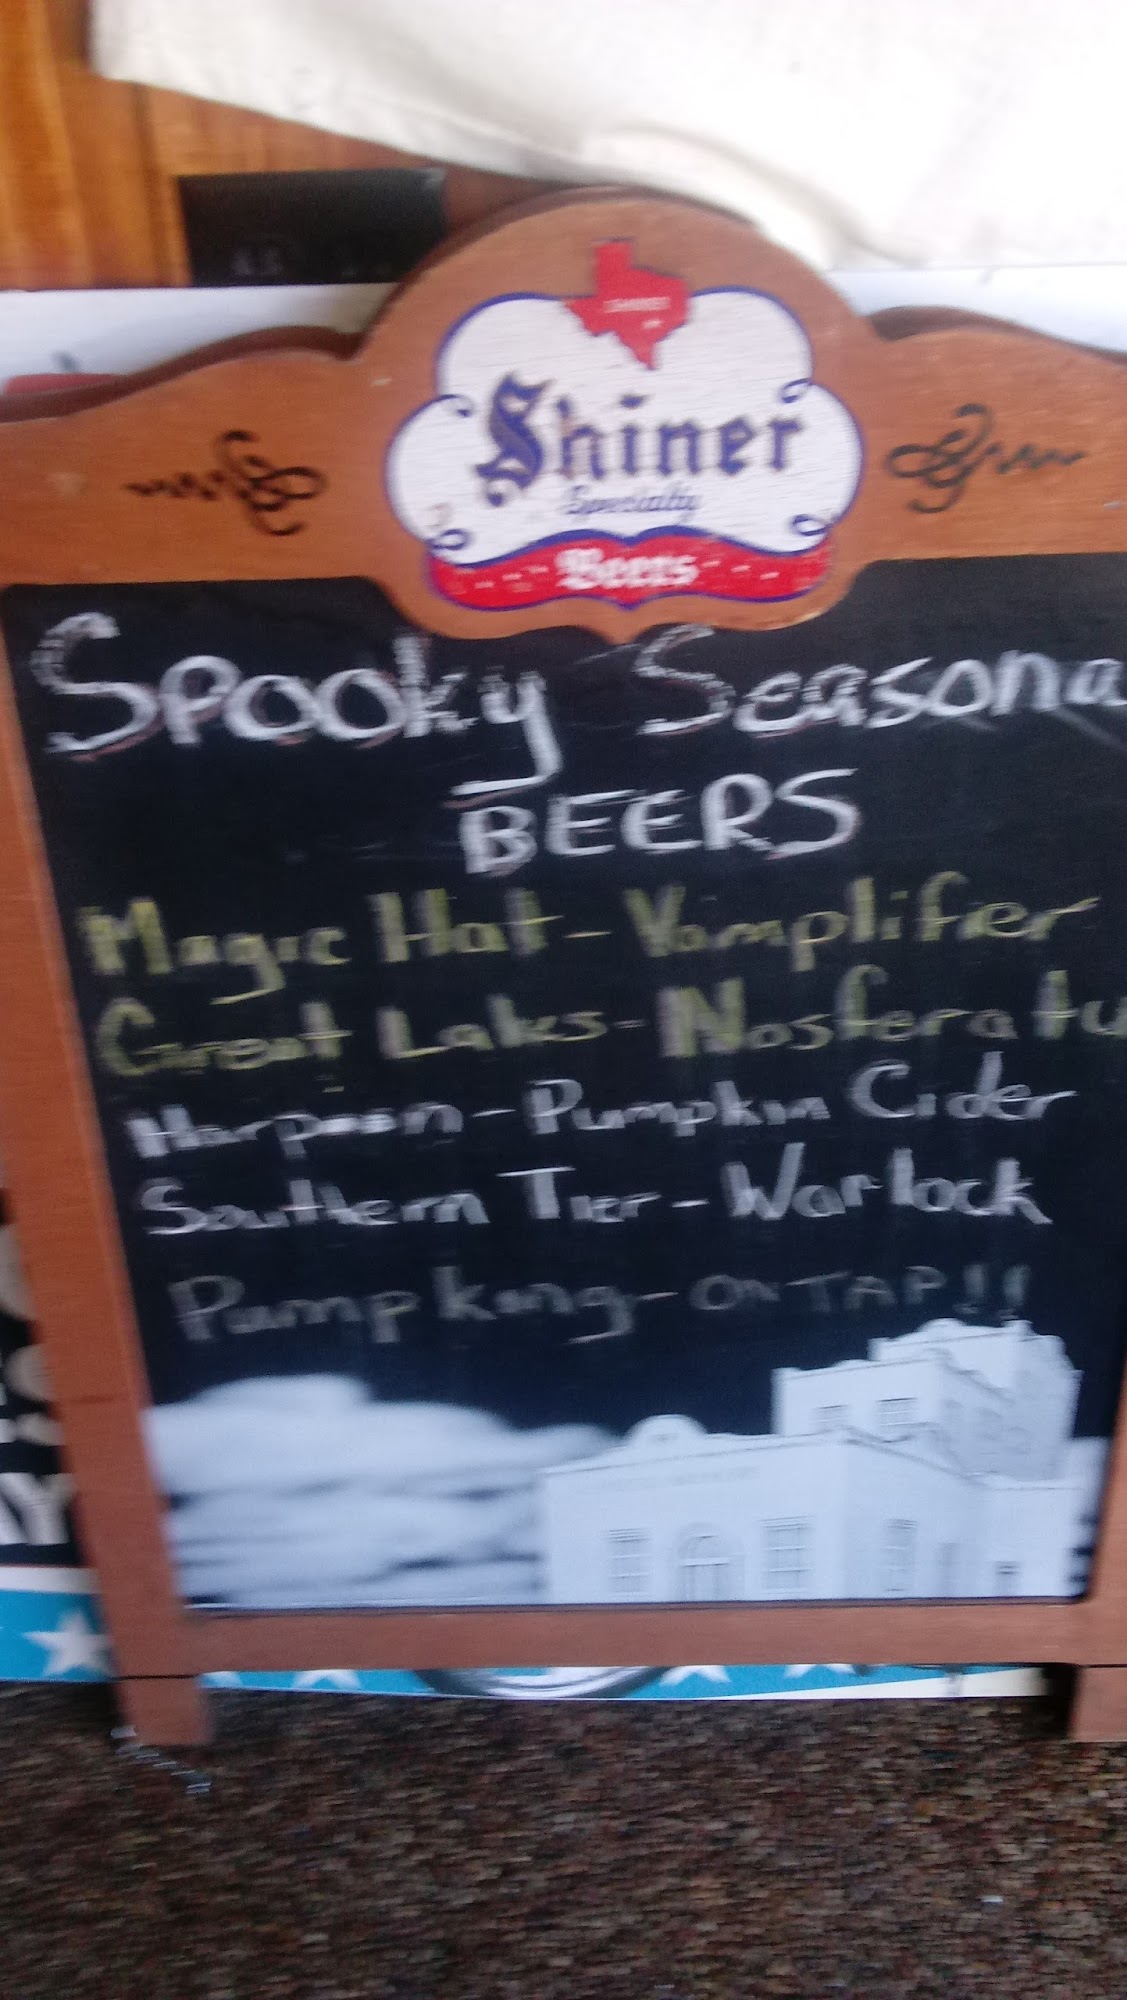 Shiner
Specialty
Beers
Spooky Seasona
BEERS
Magic Hat - Vamplifier
Great Lakes - Nosferatu
Harpoon - Pumpkin Cider
Southern Tier - Warlock
Pumpking - ON TAP!!